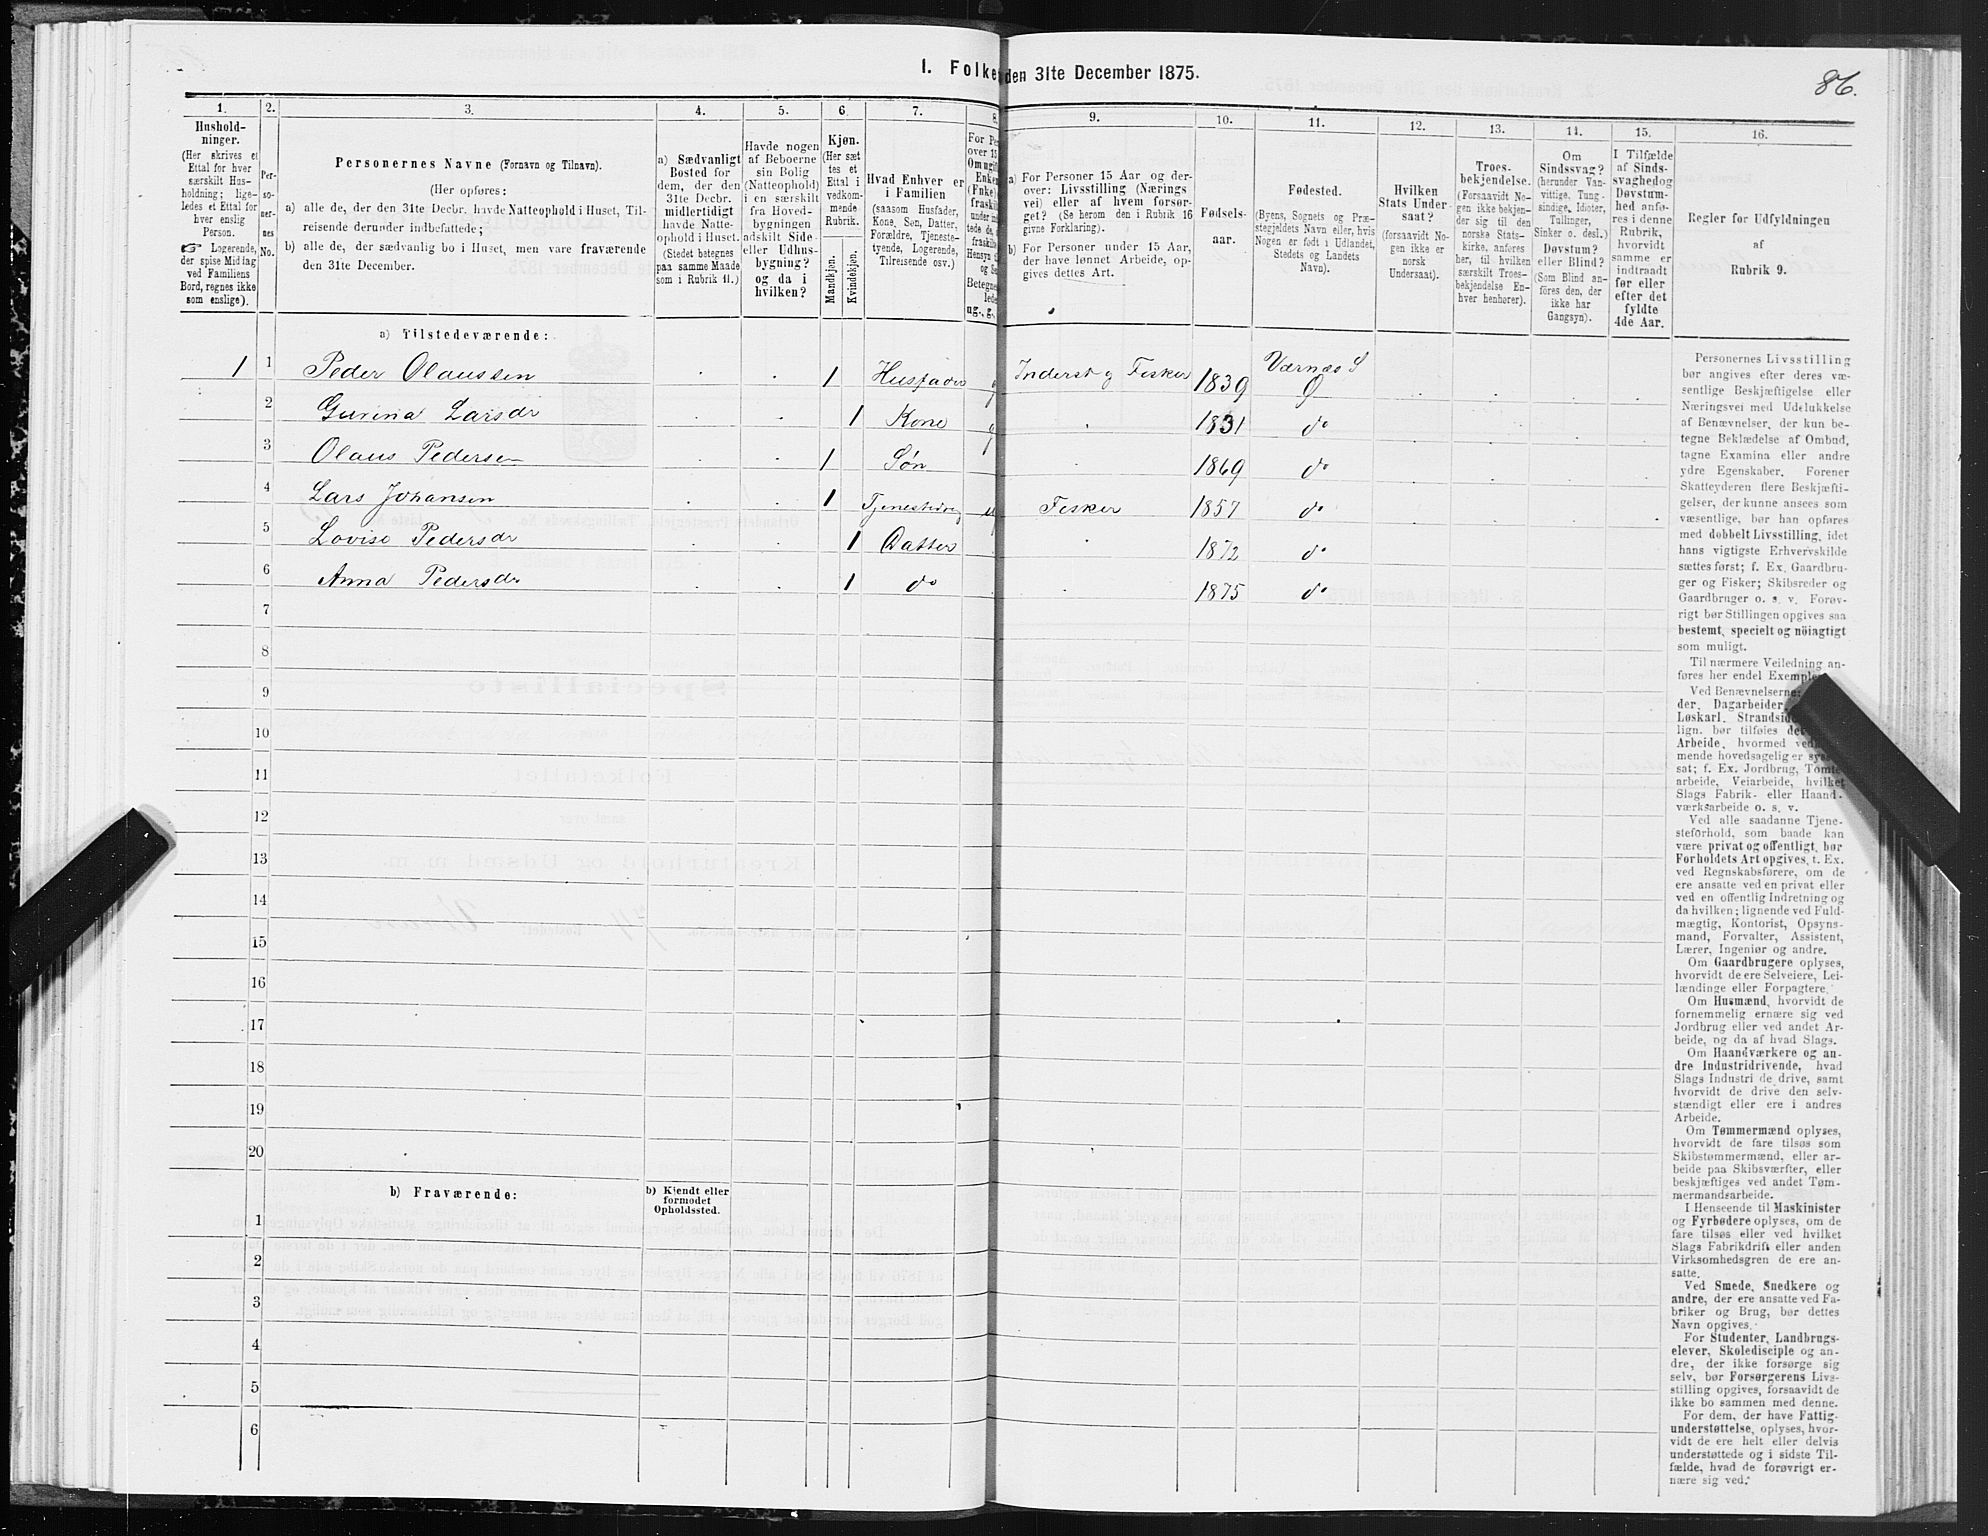 1. Folke den 31te December 1875.
86.
1. 2. 3. 4. 5. 6. 7. 8. 9. 10. 11. 12. 13. 14. 15. 16.
Hushold-
ninger.
(Her skrives et
Ettal for hver
særskilt Hus-
holdning; lige-
ledes et Ettal for
hver enslig
Person.
☞ Logerende,
der spise Middag
ved Familiens
Bord, regnes ikke
som enslige).
Per-
so-
ner-
nes
No.
Personernes Navne (Fornavn og Tilnavn).
(Her opføres:
a) alle de, der den 31te Decbr. havde Natteophold i Huset, Til-
reisende derunder indbefattede;
b) alle de, der sædvanlig bo i Huset, men vare fraværende
den 31te December.
a) Sædvanligt
Bosted for
dem, der den
31te Decbr.
midlertidigt
havde Natte-
ophold i Huset.
(Stedet betegnes
paa samme Maade
som i Rubrik 11.)
Havde nogen
af Beboerne
sin Bolig
(Natteophold)
i en særskilt
fra Hoved-
bygningen
adskilt Side-
eller Udhus-
bygning?
og da i
hvilken?
Kjøn.
(Her sæt
tes et
Ettal i
vedkom-
mende
Rubrik.
Mandkjøn.
Kvindekjøn.
Hvad Enhver er
i Familien
(saasom Husfader,
Kone, Søn, Datter,
Forældre, Tjeneste-
tyende, Logerende,
Tilreisende osv.)
For Pe
over 15
Om ugift
Enken
(Fnke)
fraskil
under ind
tede de,
fraskilt
Hensyn t
og Se
Betegne
lede
ug., g.,
a) For Personer 15 Aar og der-
over: Livsstilling (Nærings
vei) eller af hvem forsør-
get? (Se herom den i Rubrik 16
givne Forklaring).
b) For Personer under 15 Aar,
der have lønnet Arbeide, op-
gives dettes Art.
Fødsels-
aar.
Fødested.
(Byens, Sognets og Præ-
stegjeldets Navn eller, hvis
Nogen er født i Udlandet,
Stedets og Landets
Navn).
Hvilken
Stats Under-
saat?
(forsaavidt No-
gen ikke er
norsk
Undersaat).
Troes-
bekjendelse.
(Forsaavidt No-
gen ikke bekjen-
der sig til den
norske Stats-
kirke, anføres
her, til hvilken
særskilt Troes-
bekjendelse En-
hver henhører).
Om
Sindssvag?
(herunder Van-
vittige, Tung-
sindige, Idioter,
Tullinger,
Sinker o. desl.)
Døvstum?
eller Blind?
(Som Blind an-
føres den, der
ikke har
Gangsyn).
I Tilfælde
af Sinds-
svaghed og
Døvstum-
hed anfø-
res i denne
Rubrik,
hvorvidt
samme er
indtraadt
før eller
efter det
fyldte
4de Aar.
Regler for Udfyldningen
af
Rubrik 9.
a) Tilstedeværende:
1 1 Peder Olaussen 1 Husfader g Inderst g Fisker 1839 Værnæs S Ø
2 Gurina Larsdr 1 Kone g 1831 do
3 Olaus Pedersen 1 Søn 1869 do
4 Lars Johansen 1 Tjenestedreng ug Fisker 1857 do
5 Lovise Pedersdr 1 Datter 1872 do
6 Anna Pedersdr 1 do 1875 do
7
8
9
10
11
12
13
14
15
16
17
18
19
20
b) Fraværende:
b) Kjendt eller
formodet
Opholdssted.
1
2
3
4
5
6
Personernes Livsstilling
bør angives efter deres væ-
sentlige Beskjæftigelse eller
Næringsvei med Udelukkelse
af Benævnelser, der kun be-
tegne Beklædelse af Ombud,
tagne Examina eller andre
ydre Egenskaber. Forener
Skatteyderen flere Beskjæfti-
gelser, der kunne ansees som
væsentlige, bør han opføres
med dobbelt Livsstilling, idet
hans vigtigste Erhvervskilde
sættes først; f. Ex. Gaardbru-
ger og Fisker; Skibsreder og
Gaardbruger o. s. v. Forøv-
rigt bør Stillingen opgives saa
bestemt, specielt og nöiagtigt
som muligt.
Til nærmere Veiledning an-
føres her endel Exemple
Ved Benævnelserne:
der, Dagarbeider,
Løskarl, Strandsid
lign. bør tilføies det
Arbeide, hvormed ved
mende hovedsagelig er syss
sat; f. Ex. Jordbrug, Tømte
arbeide, Veiarbeide, hvilket
Slags Fabrik- eller Haand-
værksarbeide o. s. v.
Ved alle saadanne Tjene-
steforhold, som baade kan
være privat og offentligt, bør
Forholdets Art opgives, t. Ex.
ved Regnskabsførere, om de
ere ansatte ved en privat eller
ved en offentlig Indretning og
da hvilken; lignende ved Fuld-
mægtig, Kontorist, Opsyns-
mand, Forvalter, Assistent,
Lærer, Ingeniør og andre.
Om Gaardbrugere oplyses,
hvorvidt de ere Selveiere, Lei-
lændinge eller Forpagtere.
Om Husmænd, hvorvidt de
fornemmelig ernære sig ved
Jordbrug eller ved andet Ar-
beide, og da af hvad Slags.
Om Haandværkere og an-
dre Industridrivende, hvad
Slags Industri de drive, samt
hvorvidt de drive den selv-
stændigt eller ere i andres
Arbeide.
Om Tømmermænd oplyses,
hvorvidt de fare tilsøs som
Skibstømmermænd, eller ar-
beide paa Skibsværfter, eller
beskjæftiges ved andet Tøm-
mermandsarbeide.
I Henseende til Maskinister
og Fyrbødere oplyses, om de
fare tilsøs eller ved hvilket
Slags Fabrikdrift eller anden
Virksomhedsgren de ere an-
satte.
Ved Smede, Snedkere og
andre, der ere ansatte ved Fa-
briker og Brug, bør dettes
Navn opgives.
For Studenter, Landbrugs-
elever, Skoledisciple og an-
dre, der ikke forsørge sig
selv, bør Forsørgerens Livs-
stilling opgives, forsaavidt de
ikke bo sammen med denne.
For dem, der have Fattig-
understøttelse, oplyses, hvor-
vidt de ere helt eller delvis
understøttede og i sidste Til-
fælde, hvad de forøvrigt er-
nære sig ved.